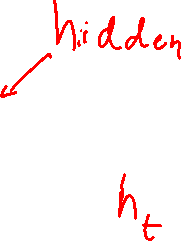 hidden
h_t